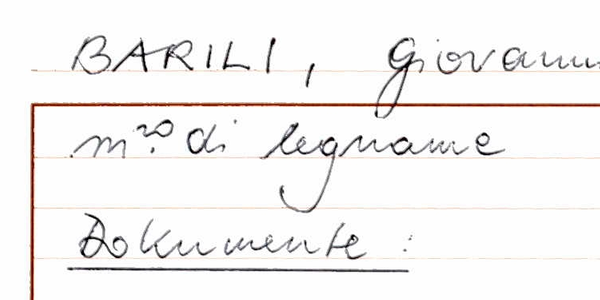 BARILI, Giovanni
m.ro di legname
Dokumente: